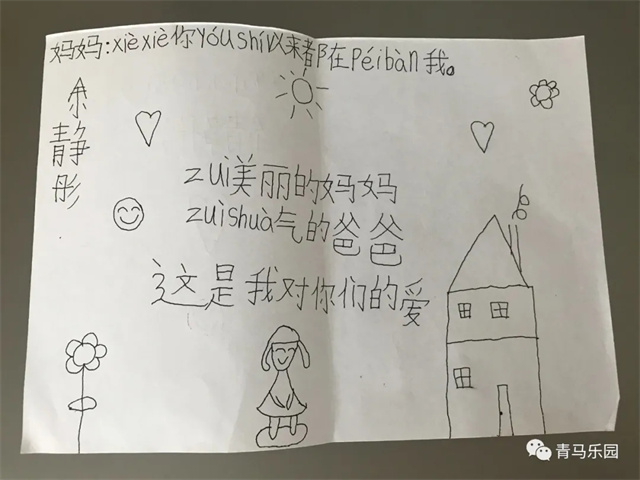 妈妈:xièxiè你yóushí以来都在péibàn我。
余静彤
zuì美丽的妈妈
zuìshuà气的爸爸
这是我对你们的爱
青马乐园